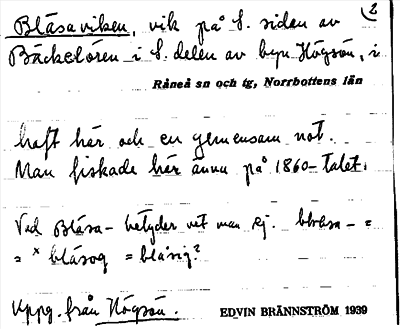 Blåsaviken, vik på S. sidan av 2
Bäckelören i S. delen av byn Högsön, i
Råneå sn och tg, Norrbottens län
haft här och en gemensam not.
Man fiskade här ännu på 1860-talet.
Ved Blåsa- betyder vet man ej. =
= × blåsog = blåsig?
Uppg. från Högsön.
EDVIN BRÄNNSTRÖM 1939